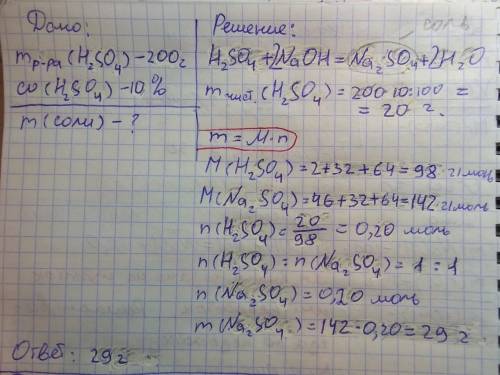 Дано:
mр-ра(H₂SO₄) – 200г
ω(H₂SO₄) – 10%
m(соли) – ?
Решение:
соль
H₂SO₄+2NaOH=Na₂SO₄+2H₂O
mчист.(H₂SO₄)=200·10:100=
=20 г.
m=M·n
M(H₂SO₄)=2+32+64=98 г/моль
M(Na₂SO₄)=46+32+64=142 г/моль
n(H₂SO₄)=20/98=0,20 моль
n(H₂SO₄):n(Na₂SO₄)=1:1
n(Na₂SO₄)=0,20 моль
m(Na₂SO₄)=142·0,20=29 г
Ответ: 29г